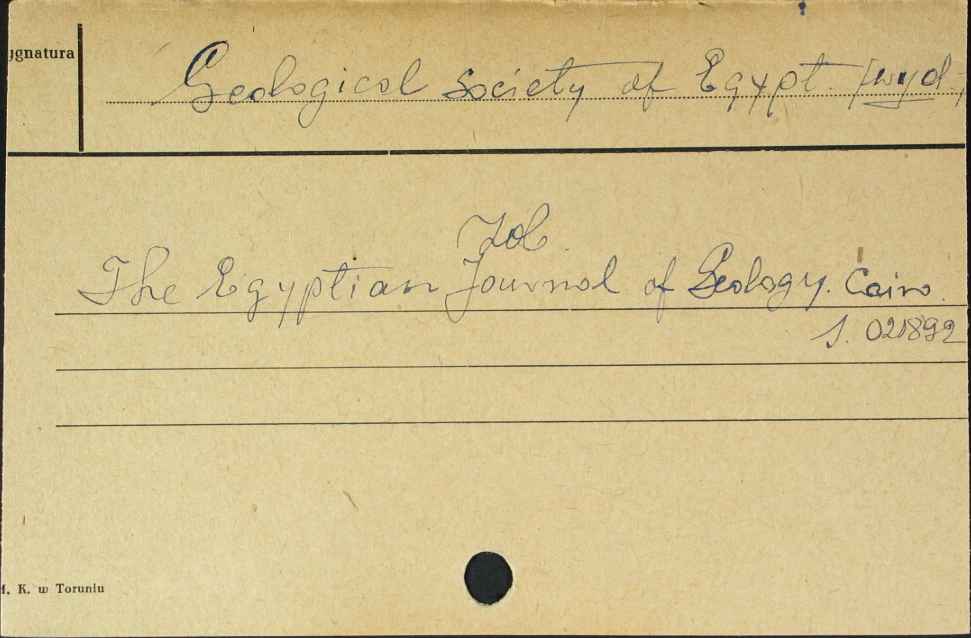 ygnatura
Geological Society of Egypt. [wyd.
Zob.
The Egyptian Journal of Geology. Cairo.
S. 021892
M. K. w Toruniu